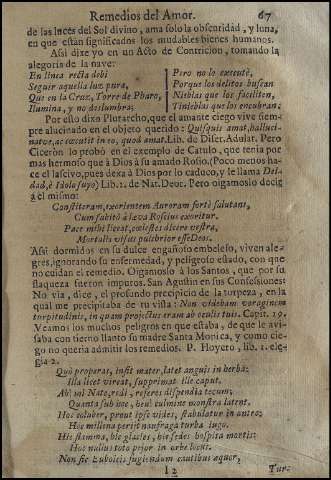 Remedios del Amor. 67
de las luces del Sol divino, ama solo la obscuridad, y luna,
en que estàn significados los mudables bienes humanos.
Assi dixe yo en un Acto de Contricion, tomando la
alegoria de la nave:
En linea recta debi
Seguir aquella luz pura,
Que en la Cruz, Torre de Pharo,
Ilumina, y no deslumbra;
Pero no lo executè,
Porque los delitos buscan
Nieblas que los faciliten,
Tinieblas que los encubran.
Por esto dixo Plutarcho, que el amante ciego vive siem-
pre alucinado en el objeto querido: Quisquis amat, hallucinatur,
ac cæcutit in eo, quod amat. Lib. de Differ. Adulat. Pero
Ciceròn lo probò en el exemplo de Catulo, que tenia por
mas hermoso que à Dios à su amado Rosio. (Poco menos ha-
ce el lascivo, pues dexa à Dios por lo caduco, y le llama Dei-
dad, è Idolo suyo) Lib. 1. de Nat. Deor. Pero oigamoslo decir
à el mismo:
Constiteram, exorientem Auroram fortè salutans,
Cum subitò à leva Roscius exoritur.
Pace mihi liceat, cœlestes dicere vestra,
Mortalis visus pulchrior esse Deo.
Assi dormidos en su dulce engañoso embeleso, viven ale-
gres, ignorando su enfermedad, y peligroso estado, con que
no cuidan el remedio. Oigamoslo à los Santos, que por su
flaqueza fueron impuros. San Agustin en sus Confessiones
No via, dice, el profundo precipicio de la torpeza, en la
qual me precipitaba de tu vista: Non videbam voraginem
turpitudinis, in quam projectus eram ab oculis tuis. Capit. 19.
Veamos los muchos peligros en que estaba, de que le avi-
saba con tierno llanto su madre Santa Monica, y como cie-
go no queria admitir los remedios. P. Hoyero, lib. 1. ele-
gia 2.
Quò properas, insit mater, latet anguis in herba:
Illa licet vireat, supprimat ille caput.
Ah! mi Nate, redi, referes dispendia tecum;
Quanta sub hoc, heu! culmine monstra latent.
Hoc coluber, prout ipse vides, stabulatur in antro;
Hoc millena perit naufraga turba jugo.
Hic flamma, hic glacies, hic sedes hospita mortis:
Hoc nullus toto prior in orbe locus.
Non sic Euboicis fugiendum cautibus æquor,
I 2 Tur-